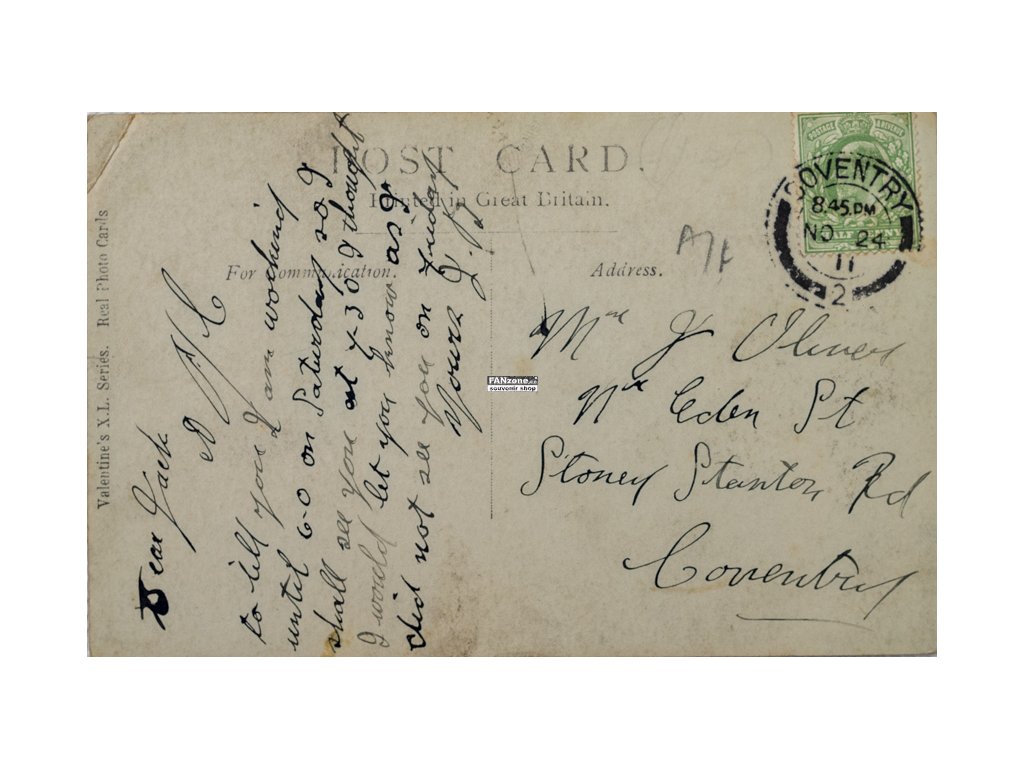 POST CARD.
Printed in Great Britain.
For Communication.
Address.
Valentine's X.L. Series. Real Photo Cards
POSTAGE & REVENUE
HALF PENNY
COVENTRY
8.45 PM
NO 24
11
2
FANzone
souvenir shop
Dear Jack
A P/C
to tell you I am working
until 6-0 on Saturday so I
shall see you at 4-30 I thought
I would let you know as I
did not see you on Friday
Yours
Mr J Oliver
Eden St
Stoney Stanton Rd
Coventry